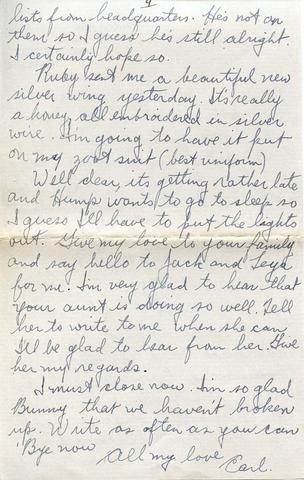 4
lists from headquarters. He's not on
them so I guess he's still alright.
I certainly hope so.
Ruby sent me a beautiful new
silver wing yesterday. It's really
a honey, all embroidered in silver
wire. I'm going to have it put
on my zoot suit (best uniform)
Well dear, it's getting rather late
and Hump wants to go to sleep so
I guess I'll have to put the lights
out. Give my love to your family
and say hello to Jack and
for me. I'm very glad to hear that
your aunt is doing so well. Tell
her to write to me when she can
I'll be glad to hear from her. Give
her my regards.
I must close now. I'm so glad
Bunny that we haven't broken
up. Write as often as you can
'Bye now
All my love
Earl.